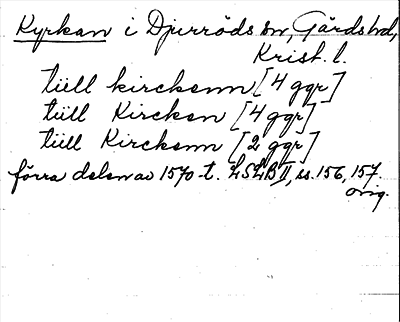 Kyrkan i Djurröds sn, Gärds hd,
Krist. l.
tüll kirckenn [4 ggr]
tüll Kircken [4 ggr]
tüll Kirckenn [2 ggr]
förra delen av 1570-t. LSLB II, ss. 156, 157.
orig.